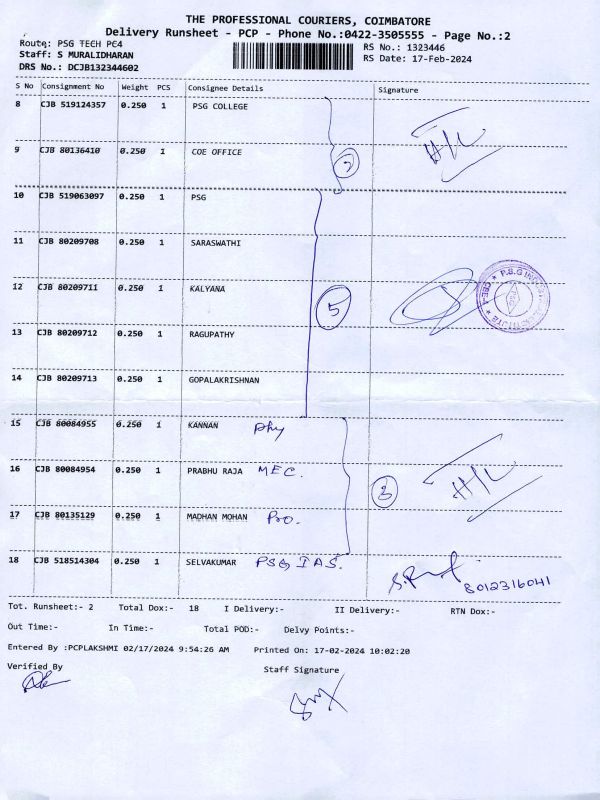 THE PROFESSIONAL COURIERS, COIMBATORE
Delivery Runsheet - PCP - Phone No.:0422-3505555 - Page No.:2
Route: PSG TECH PC4
RS No.: 1323446
Staff: S MURALIDHARAN
RS Date: 17-Feb-2024
DRS No.: DCJB132344602
S No Consignment No Weight PCS Consignee Details Signature
8 CJB 519124357 0.250 1 PSG COLLEGE
9 CJB 80136410 0.250 1 COE OFFICE
10 CJB 519063097 0.250 1 PSG
11 CJB 80209708 0.250 1 SARASWATHI
12 CJB 80209711 0.250 1 KALYANA
5
13 CJB 80209712 0.250 1 RAGUPATHY
14 CJB 80209713 0.250 1 GOPALAKRISHNAN
15 CJB 80084955 0.250 1 KANNAN Phy
16 CJB 80084954 0.250 1 PRABHU RAJA MEC.
3
17 CJB 80135129 0.250 1 MADHAN MOHAN Pro.
18 CJB 518514304 0.250 1 SELVAKUMAR PSG IAS.
8012316041
Tot. Runsheet:- 2 Total Dox:- 18 I Delivery:- II Delivery:- RTN Dox:-
Out Time:- In Time:- Total POD:- Delvy Points:-
Entered By :PCPLAKSHMI 02/17/2024 9:54:26 AM Printed On: 17-02-2024 10:02:20
Verified By Staff Signature